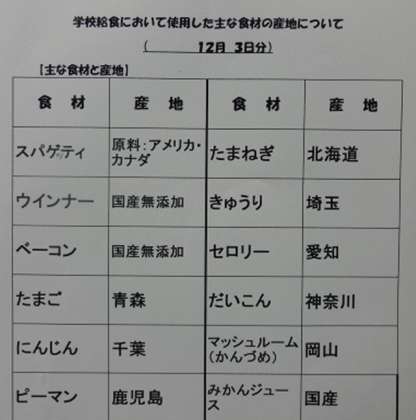 学校給食において使用した主な食材の産地について
(　12月 3日分)
【主な食材と産地】
食 材 産 地 食 材 産 地
スパゲティ 原料：アメリカ・カナダ たまねぎ 北海道
ウインナー 国産無添加 きゅうり 埼玉
ベーコン 国産無添加 セロリー 愛知
たまご 青森 だいこん 神奈川
にんじん 千葉 マッシュルーム（かんづめ） 岡山
ピーマン 鹿児島 みかんジュース 国産